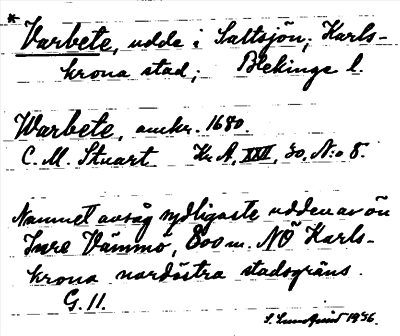 * Varbete, udde i Saltsjön; Karls-
krona stad; Blekinge l.
Warbete, omkr. 1680.
C. M. Stuart Kr A, XXII, 30, N:o 8.
Namnet avsåg sydligaste udden av ön
Inre Vämmö, 800 m. NÖ Karls-
krona nordöstra stadsgräns.
G. 11.
S. Lundqvist 1936